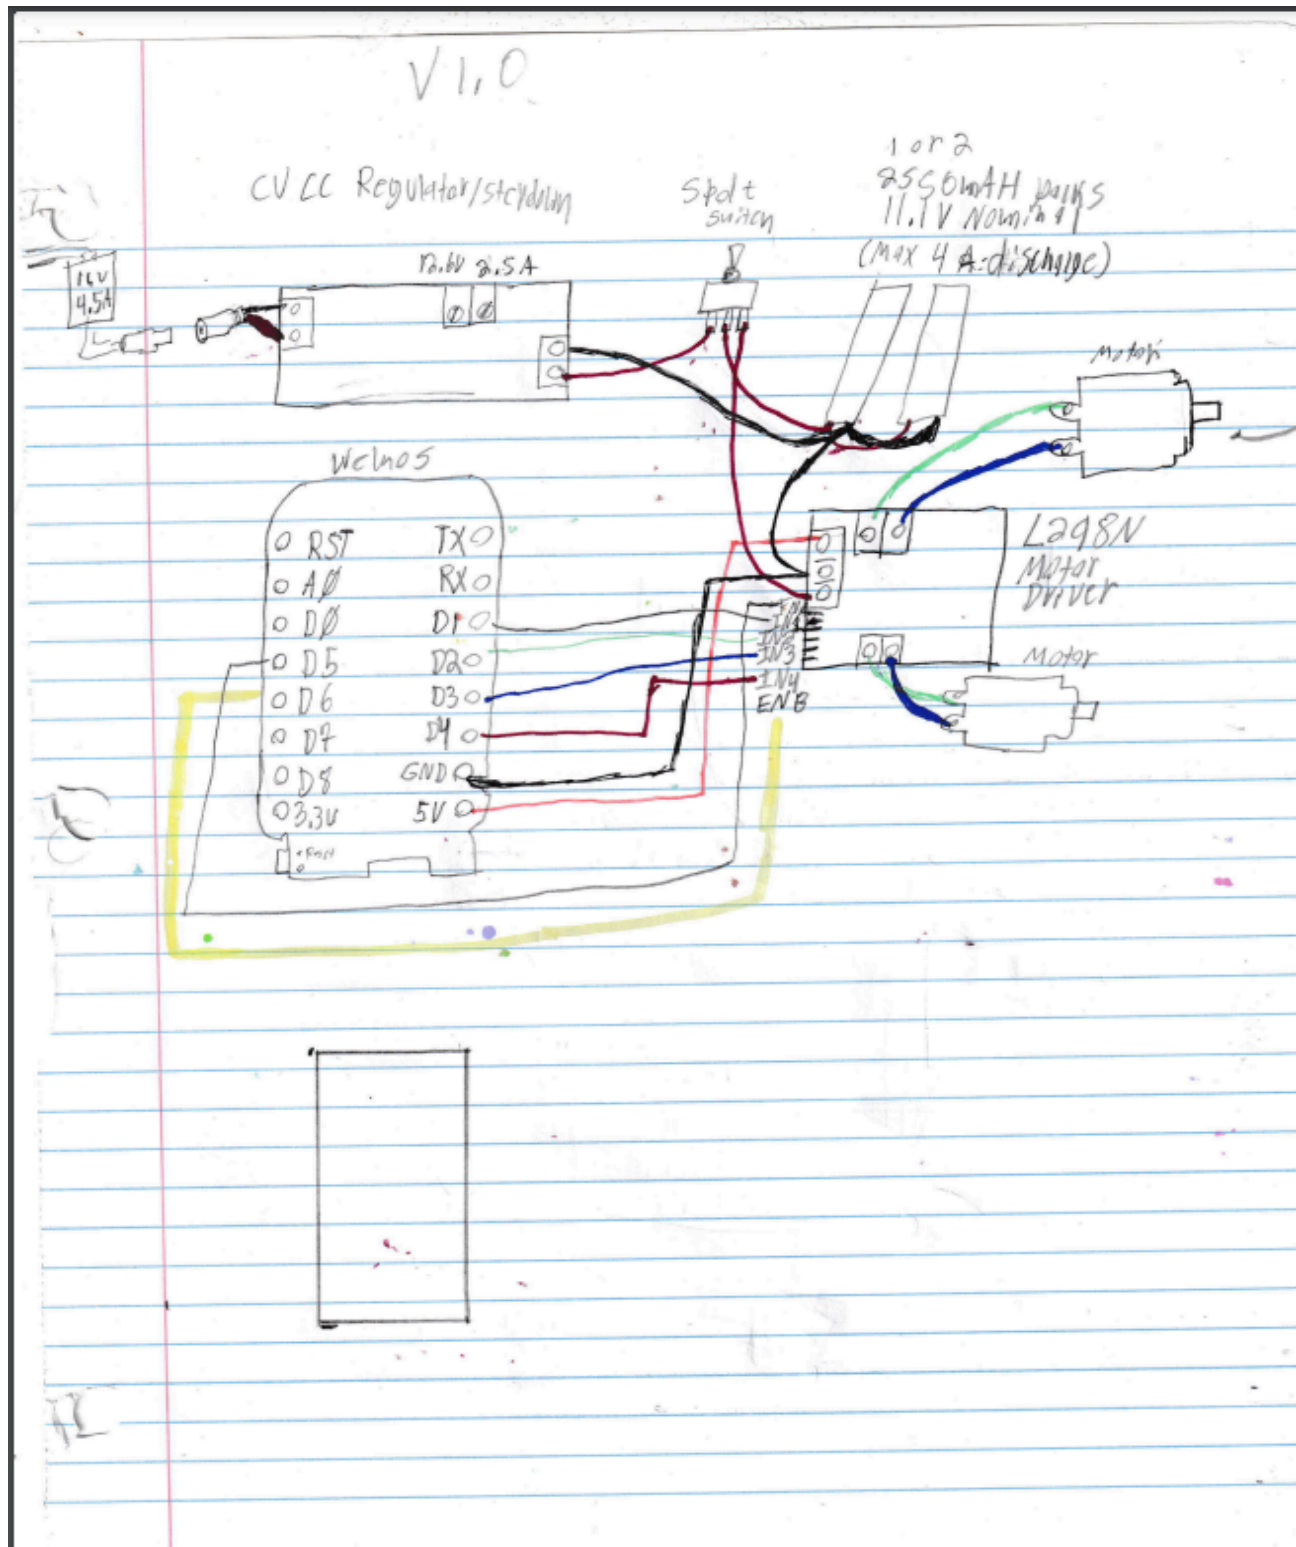 V 1.0
CV CC Regulator/stepdown
Spdt
switch
1 or 2
2550mAH packs
11.1V Nominal
(Max 4 A discharge)
16V
4.5A
12.6V 2.5A
Motor
Wemos
RST
TX
A0
RX
D0
D1
D5
D2
D6
D3
D7
D4
D8
GND
3.3V
5V
L298N
Motor
Driver
IN1
IN2
IN3
IN4
ENB
Motor